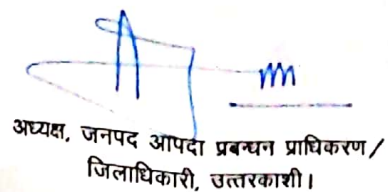 अध्यक्ष, जनपद आपदा प्रबन्धन प्राधिकरण/
जिलाधिकारी, उत्तरकाशी।